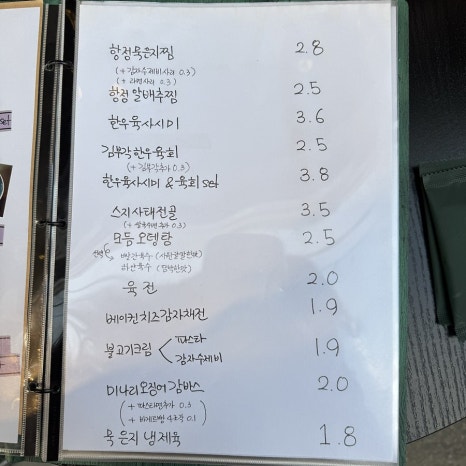 항정묵은지찜 2.8
(+ 감자수제비사리 0.3)
(+ 라면사리 0.3)
항정 알배추찜 2.5
한우육사시미 3.6
김부각한우육회 2.5
(+ 김부각추가 0.3)
한우육사시미 & 육회 set 3.8
스지사태전골 3.5
모듬오뎅탕 2.5
빨간육수 (시원칼칼한맛)
하얀육수 (담백한맛)
육전 2.0
베이컨치즈감자채전 1.9
불고기크림 < 파스타 1.9
감자수제비
미나리오징어감바스 2.0
(+ 파스타면추가 0.3
+ 바게트빵 4조각 0.1)
묵은지냉제육 1.8
set